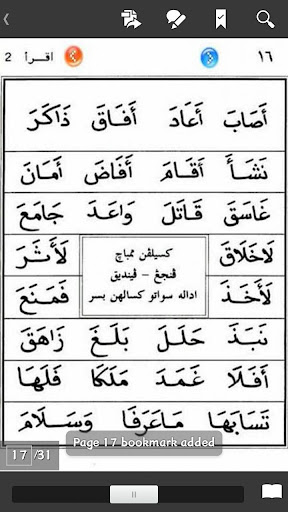 ١٦ اقرأ 2
ذَاكَرَ أَفَاقَ أَعَادَ أَصَابَ
أَمَانَ أَفَاضَ أَقَامَ نَشَأَ
جَامَعَ وَاعَدَ قَاتَلَ غَاسَقَ
لَأَثَرَ لَاخَلَاقَ
كسيلڤن ممباچ
ڤنجڠ – ڤينديق
اداله سواتو كسالهن بسر
فَمَنَعَ لَأَخَذَ
زَاهَقَ بَلَغَ حَلَلَ نَبَذَ
فَلَهَا مَلَكَا غَمَدَ أَفَلَا
وَسَلَامَ مَاعَرَفَا تَسَابَهَا
Page 17 bookmark added
17 /31